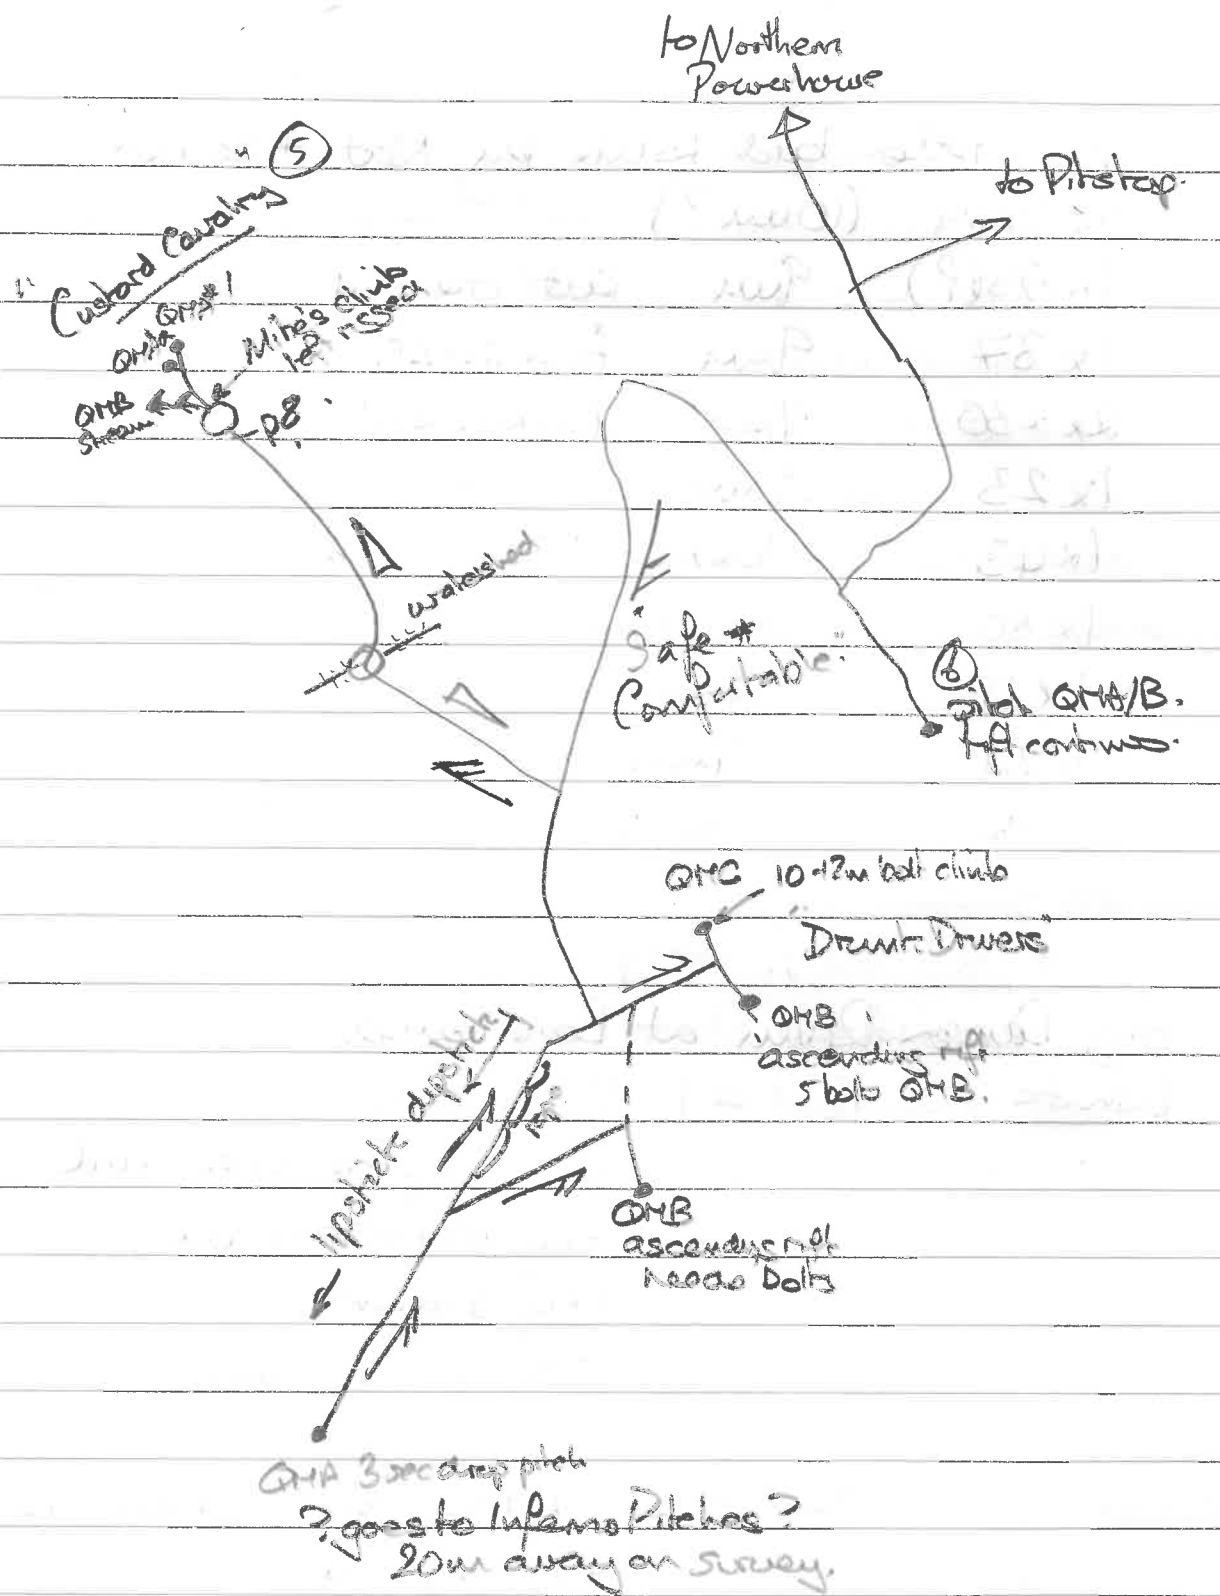 to Northern
Powerhouse
to Pitstop.
" 5
"Custard Cavalry
QMA* !
QMA
Mike's climb
rissed
QMB
stream
p8.
watershed
"Safe *
Comfortable".
6
pitch QMA/B.
rift continues.
QMC 10-12m bolt climb
"Drunk Drivers"
QMB
ascending rift
5 bolts QMB.
lipstick dipstick
QMB
ascending rift
needs bolts
QMA 3 sec drop pitch
? goes to Inferno Pitches ?
20m away on survey.